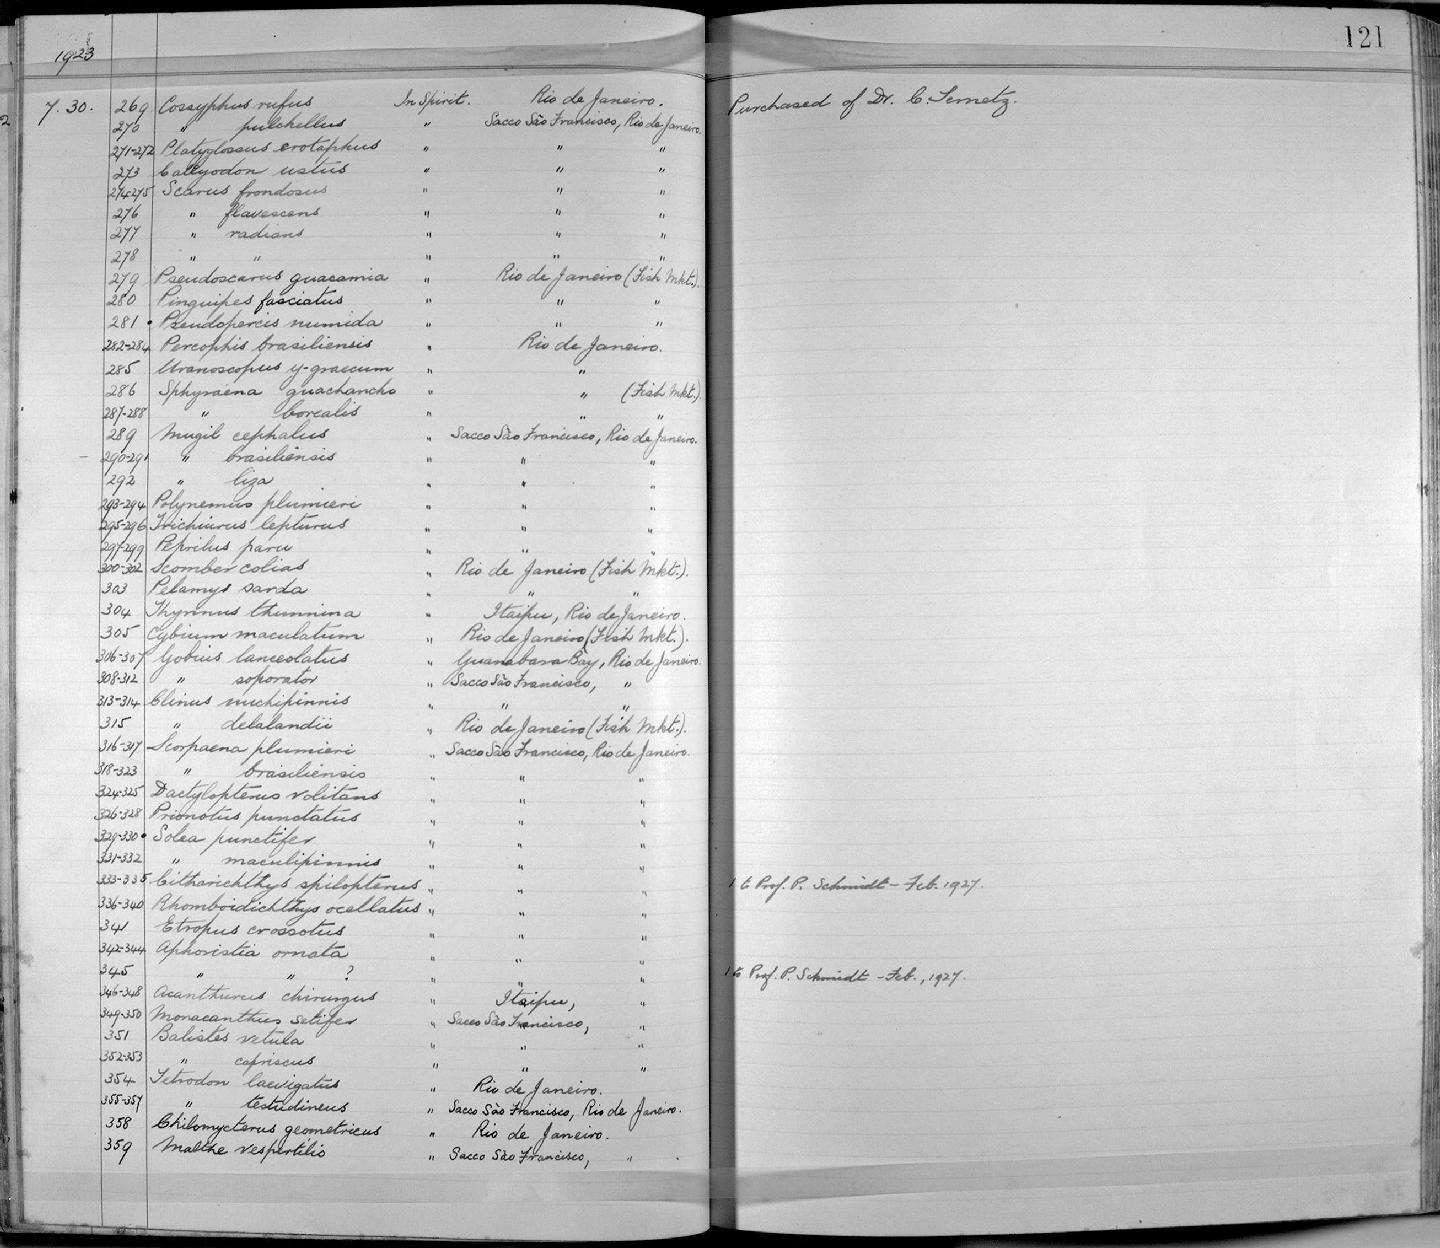 121
1923
7. 30. 269 Cossyphus rufus In Spirit. Rio de Janeiro. Purchased of Dr. C. Ternetz.
2
270 " pulchellus " Sacco São Francisco, Rio de Janeiro.
271-272 Platyglossus crotaphus " " "
273 Callyodon ustus " " "
274-275 Scarus frondosus " " "
276 " flavescens " " "
277 " radians " " "
278 " " " " "
279 Pseudoscarus guacamia " Rio de Janeiro (Fish Mkt.).
280 Pinguipes fasciatus " " "
281 • Pseudopercis numida " " "
282-284 Percophis brasiliensis " Rio de Janeiro.
285 Uranoscopus y-graecum " "
286 Sphyraena guachancho " " (Fish Mkt.).
287-288 " borealis " " "
289 Mugil cephalus " Sacco São Francisco, Rio de Janeiro.
290-291 " brasiliensis " " "
292 " liza " " "
293-294 Polynemus plumieri " " "
295-296 Trichiurus lepturus " " "
297-299 Peprilus paru " " "
300-302 Scomber colias " Rio de Janeiro (Fish Mkt.).
303 Pelamys sarda " " "
304 Thynnus thunnina " Itaipu, Rio de Janeiro.
305 Cybium maculatum " Rio de Janeiro (Fish Mkt.).
306-307 Gobius lanceolatus " Guanabara Bay, Rio de Janeiro.
308-312 " soporator " Sacco São Francisco, "
313-314 Clinus nuchipinnis " " "
315 " delalandii " Rio de Janeiro (Fish Mkt.).
316-317 Scorpaena plumieri " Sacco São Francisco, Rio de Janeiro.
318-323 " brasiliensis " "
324-325 Dactylopterus volitans " " "
326-328 Prionotus punctatus " " "
329-330 • Solea punctifer " " "
331-332 " maculipinnis " " "
333-335 Citharichthys spilopterus " " " 1 to Prof. P. Schmidt - Feb. 1927.
336-340 Rhomboidichthys ocellatus " " "
341 Etropus crossotus " " "
342-344 Aphoristia ornata " " "
345 " " ? " " 1 to Prof. P. Schmidt - Feb., 1927.
346-348 Acanthurus chirurgus " Itaipu, "
349-350 Monacanthus setifer " Sacco São Francisco, "
351 Balistes vetula " " "
352-353 " capriscus " " "
354 Tetrodon laevigatus " Rio de Janeiro.
355-357 " testudineus " Sacco São Francisco, Rio de Janeiro.
358 Chilomycterus geometricus " Rio de Janeiro.
359 Malthe vespertilio " Sacco São Francisco, " .